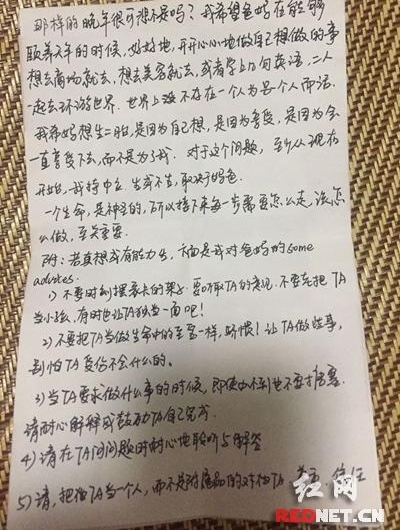 那样的晚年很可悲不是吗？我希望爸妈在能够
颐养天年的时候，好好地，开开心心地做自己想做的事
想去商场就去，想去美容就去，或者学上几句英语，二人
一起去环游世界．世界上没不存在一个人为另个人而活．
我希妈想生二胎，是因为自己想，是因为喜爱，是因为会
一直喜爱下去，而不是为了我．对于这个问题，至少从现在
开始，我持中立．生或不生，取决于妈爸．
一个生命，是神圣的，所以接下来每一步需要怎么走，该怎
么做，至关重要．
附：若真想或有能力生，下面是我对爸妈的some
advices.
1）不要时刻摆家长的架子．要听取TA的意见．不要总把TA
当小孩，有时也让TA独当一面吧！
2）不要把TA当做生命中的至宝一样，娇惯！让TA做些事，
别怕TA受伤不会什么的．
3）当TA要求做什么事的时候，即使办不到也不要
请耐心解释或鼓励TA自己完成．
4）请在TA问问题时耐心地聆听与解答
5）请，把TA当一个人，而不是附属品的对待TA
红网
REDNET.CN